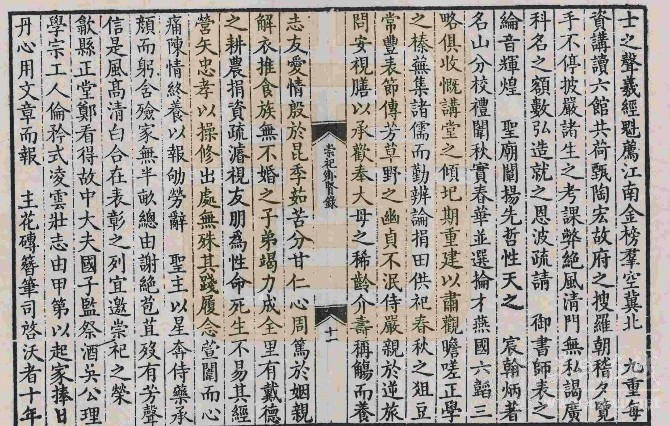 士之聲羲經魁薦江南金榜羣空冀北　九重每
資講讀六館共荷甄陶宏故府之搜羅朝稽夕覽
手不停披嚴諸生之考課弊絶風清門無私謁廣
科名之額數弘造就之恩波疏請　御書師表之
綸音輝煌　聖廟闡揚先哲性天之　宸翰炳著
名山分校禮闈秋實春華並選掄才燕國六韜三
略俱收慨講堂之傾圮期重建以肅觀瞻嗟正學
之榛蕪集諸儒而勤辨論捐田供祀春秋之俎豆
常豐表節傳芳草野之幽貞不泯侍嚴親於逆旅
問安視膳以承歡奉大母之稀齡介壽稱觴而養
崇祀鄉賢錄
十一
志友愛情殷於昆季茹苦分甘仁心周篤於姻親
解衣推食族無不婚之子弟竭力成全里有戴德
之耕農捐資疏濬視友朋為性命死生不易其經
營矢忠孝以操修出處無殊其踐履念萱闈而心
痛陳情終養以報劬勞辭　聖主以星奔侍藥承
顏而躬含殮家無半畝總由謝絶苞苴歿有芳聲
信是風高清白合在表彰之列宜邀崇祀之榮
歙縣正堂鄭看得故中大夫國子監祭酒吳公理
學宗工人倫矜式凌雲壯志由甲第以起家捧日
丹心用文章而報　主花磚簪筆司啓沃者十年